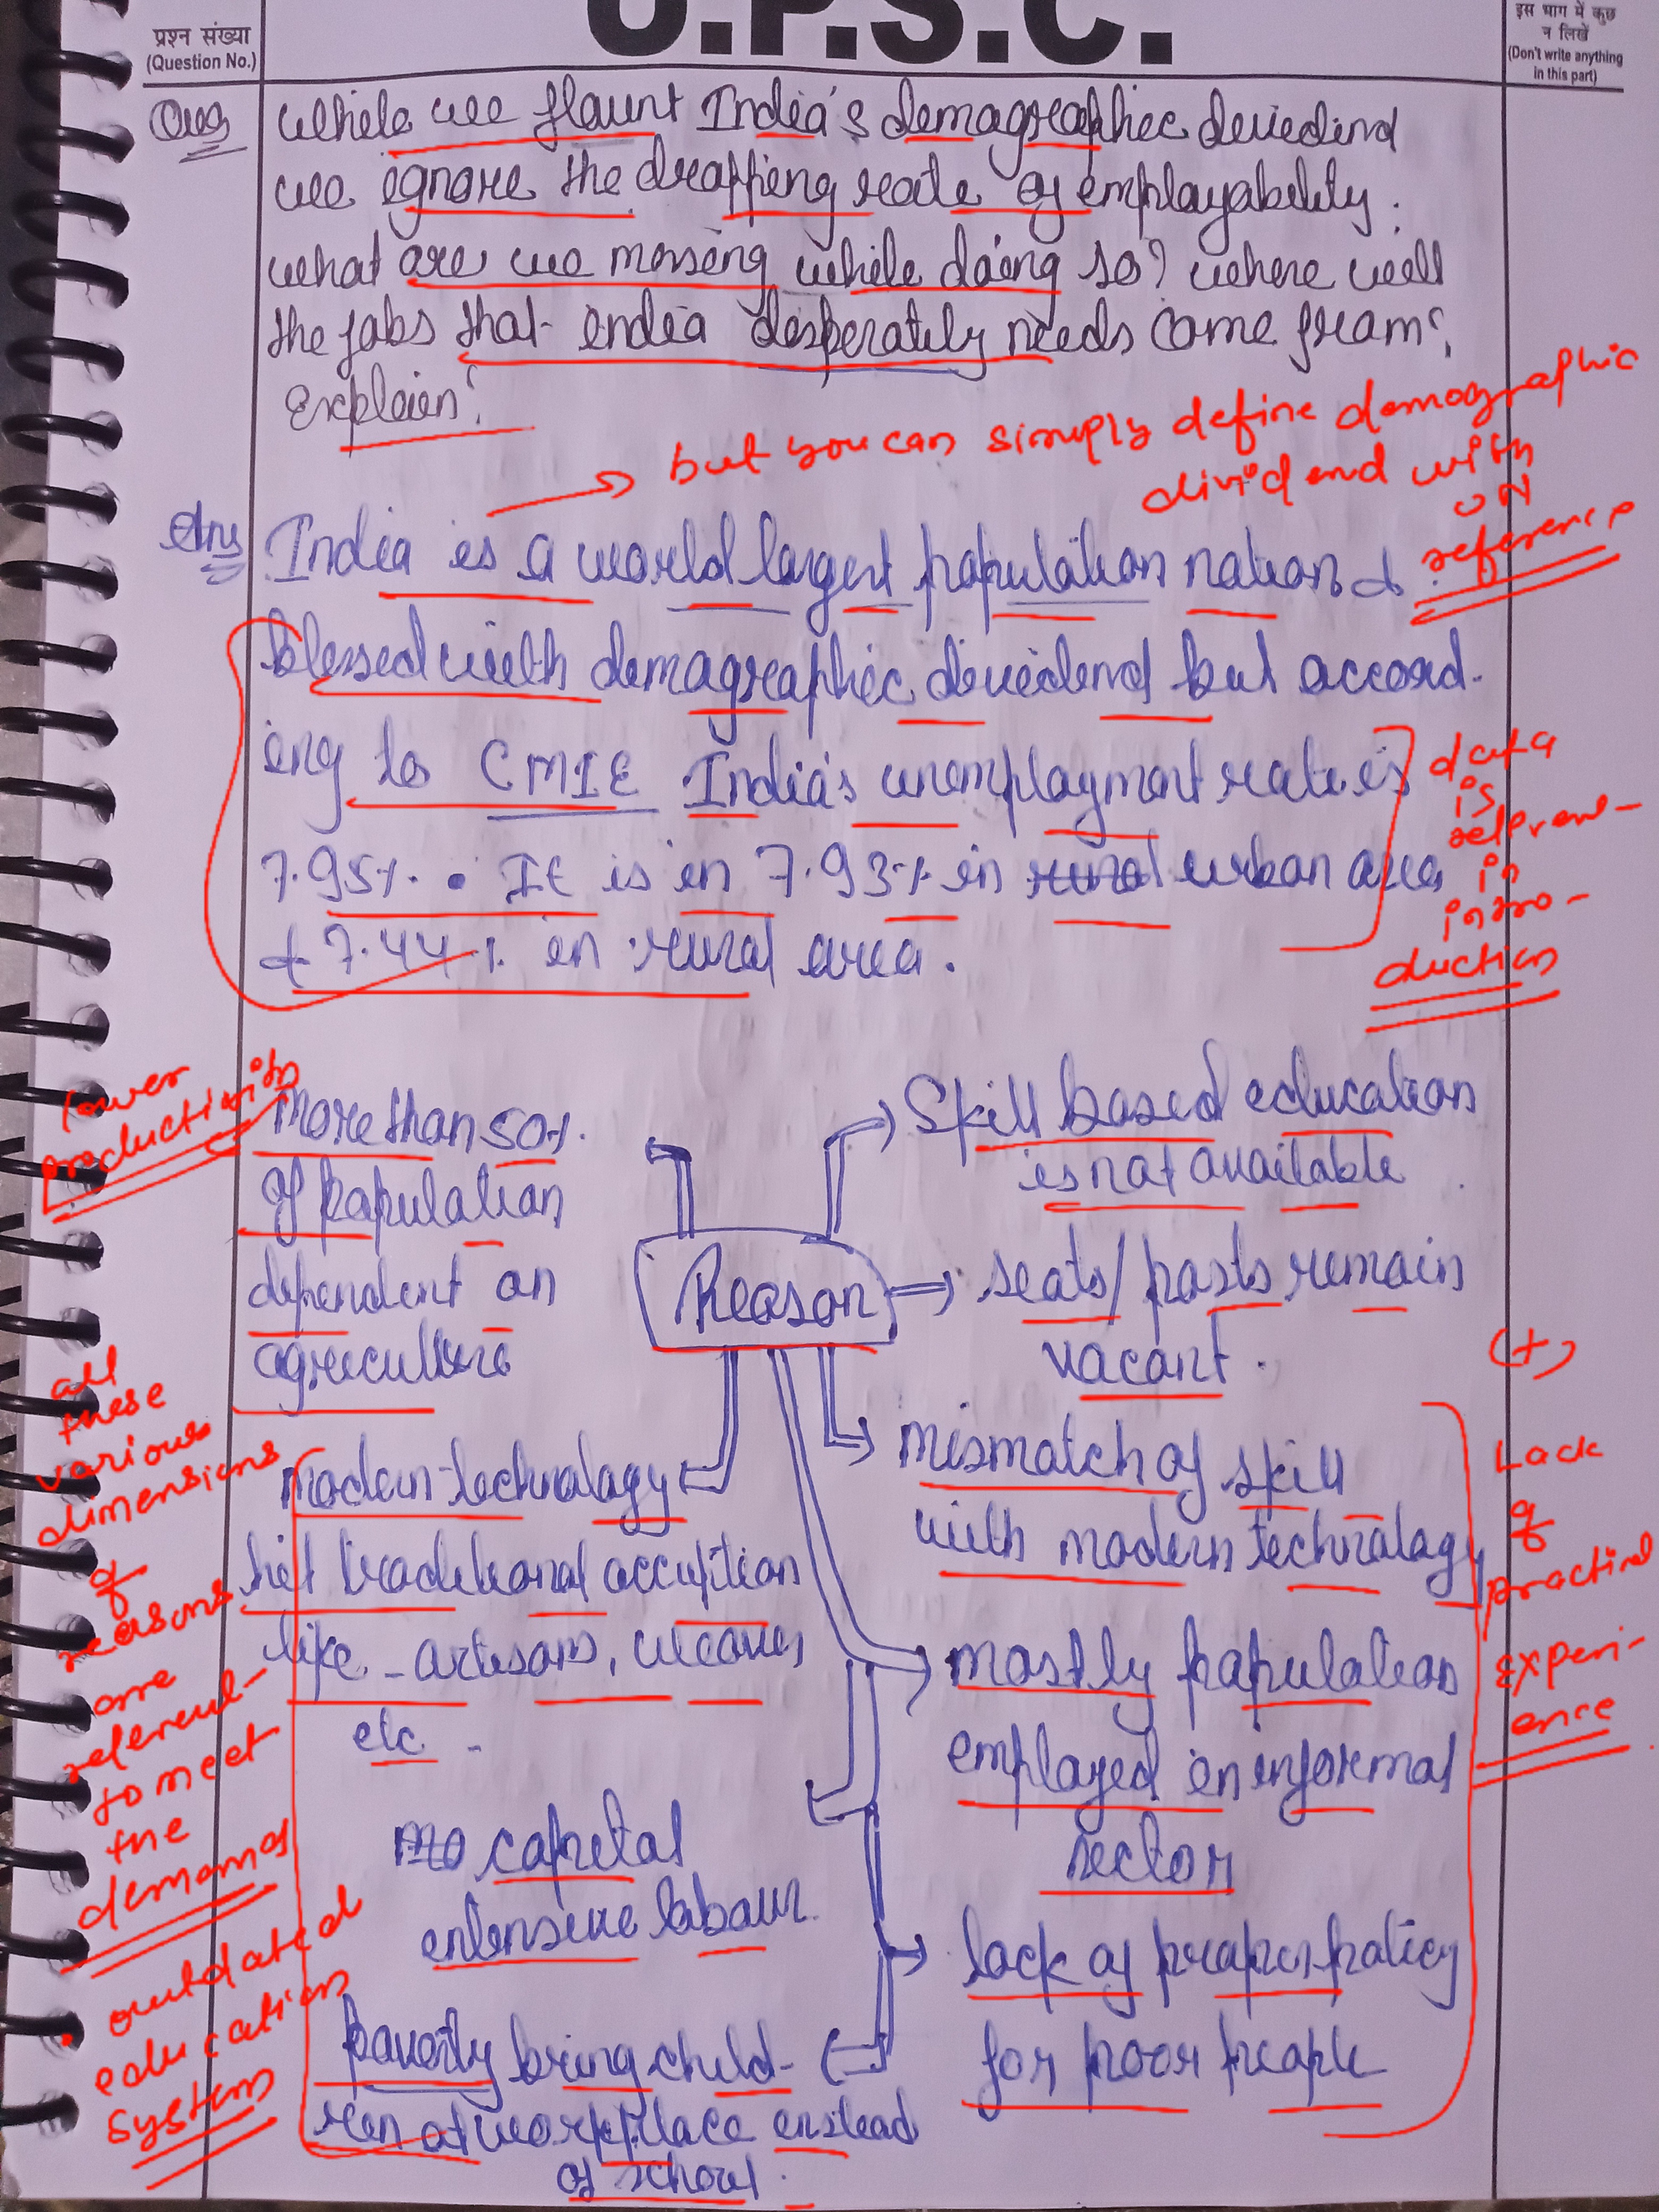 U.P.S.C.
प्रश्न संख्या
(Question No.)
इस भाग में कुछ
न लिखें
(Don't write anything
in this part)
Ques
while we flaunt India's demographic dividend
we ignore the dropping rate of employability.
what are we missing while doing so? where will
the jobs that india desperately needs come from?
Explain?
→ but you can simply define demographic
dividend with
UN
reference
Ans
India is a world largest population nation &
blessed with demographic dividend but accord-
ing to CMIE India's unemployment rate is
7.95%. It is in 7.93% in rural urban area
& 7.44% in rural area.
data
is
in
intro-
duction
lower
productivity
More than 50%
of population
dependent on
agriculture
Skill based education
is not available
Reason
seats/posts remain
vacant.
mismatch of skill
with modern technology
mostly population
employed in informal
sector
lack of proper policy
for poor people
modern technology
hit traditional
like - artisans,
etc -
no capital
intensive labour.
poverty bring child-
ren at workplace instead
of school.
all
these
various
dimensions
of
reasons
are
to meet
the
demand
outdated
education
system
(+)
Lack
of
practical
experi-
ence